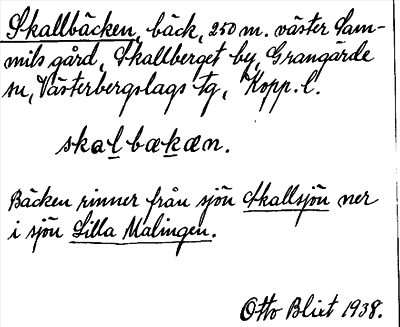 Skallbäcken, bäck, 250 m. väster Gam-
mils gård, Skallberget by, Grangärde
sn, Västerbergslags tg, Kopp. l.
skalbækæn.
Bäcken rinner från sjön Skallsjön ner
i sjön Lilla Malingen.
Otto Blixt 1938.